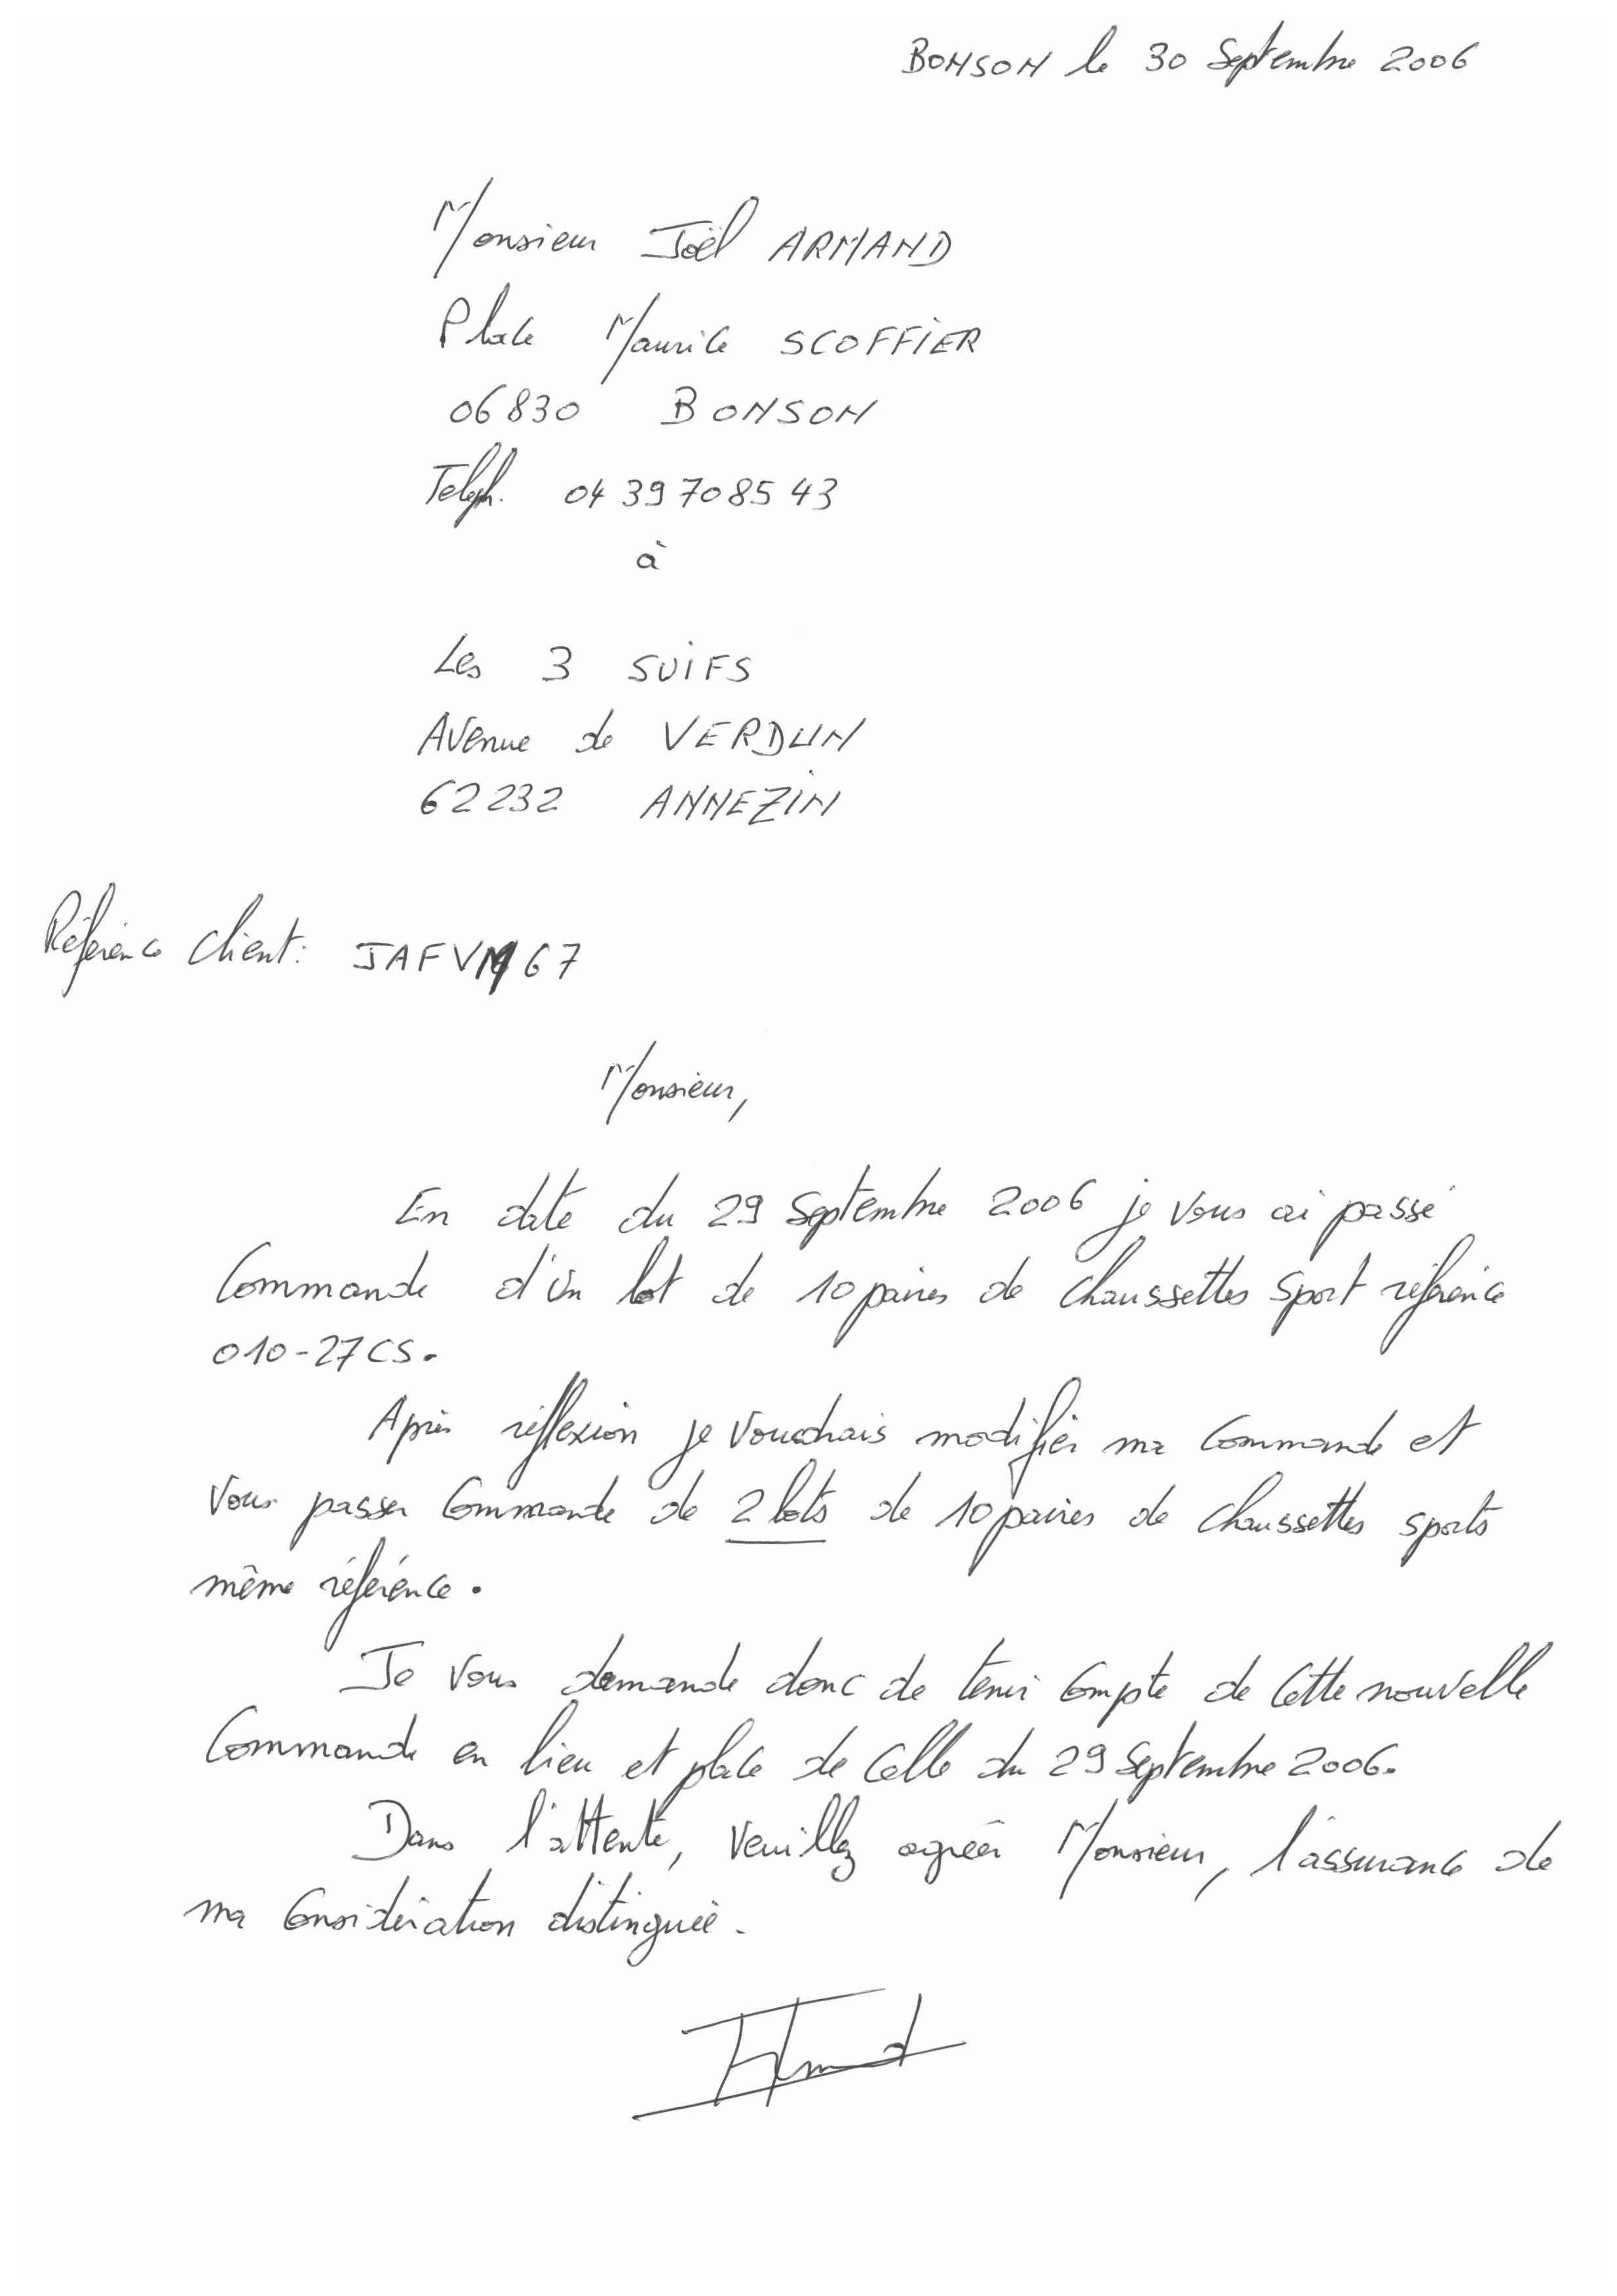 BONSON le 30 Septembre 2006
Monsieur Joël ARMAND
Place Maurice SCOFFIER
06830 BONSON
Teleph. 04 39 70 85 43
à
Les 3 SUIFS
Avenue de VERDUN
62232 ANNEZIN
Référence Client: JAFVM67
Monsieur,
En date du 29 Septembre 2006 je vous ai passé
Commande d'un lot de 10 paires de chaussettes sport référence
010-27CS.
Après réflexion je voudrais modifier ma Commande et
vous passer Commande de 2 lots de 10 paires de chaussettes sports
même référence.
Je vous demande donc de tenir Compte de Cette nouvelle
Commande en lieu et place de Celle du 29 Septembre 2006.
Dans l'attente, veuillez agréer Monsieur, l'assurance de
ma Considération distinguée.